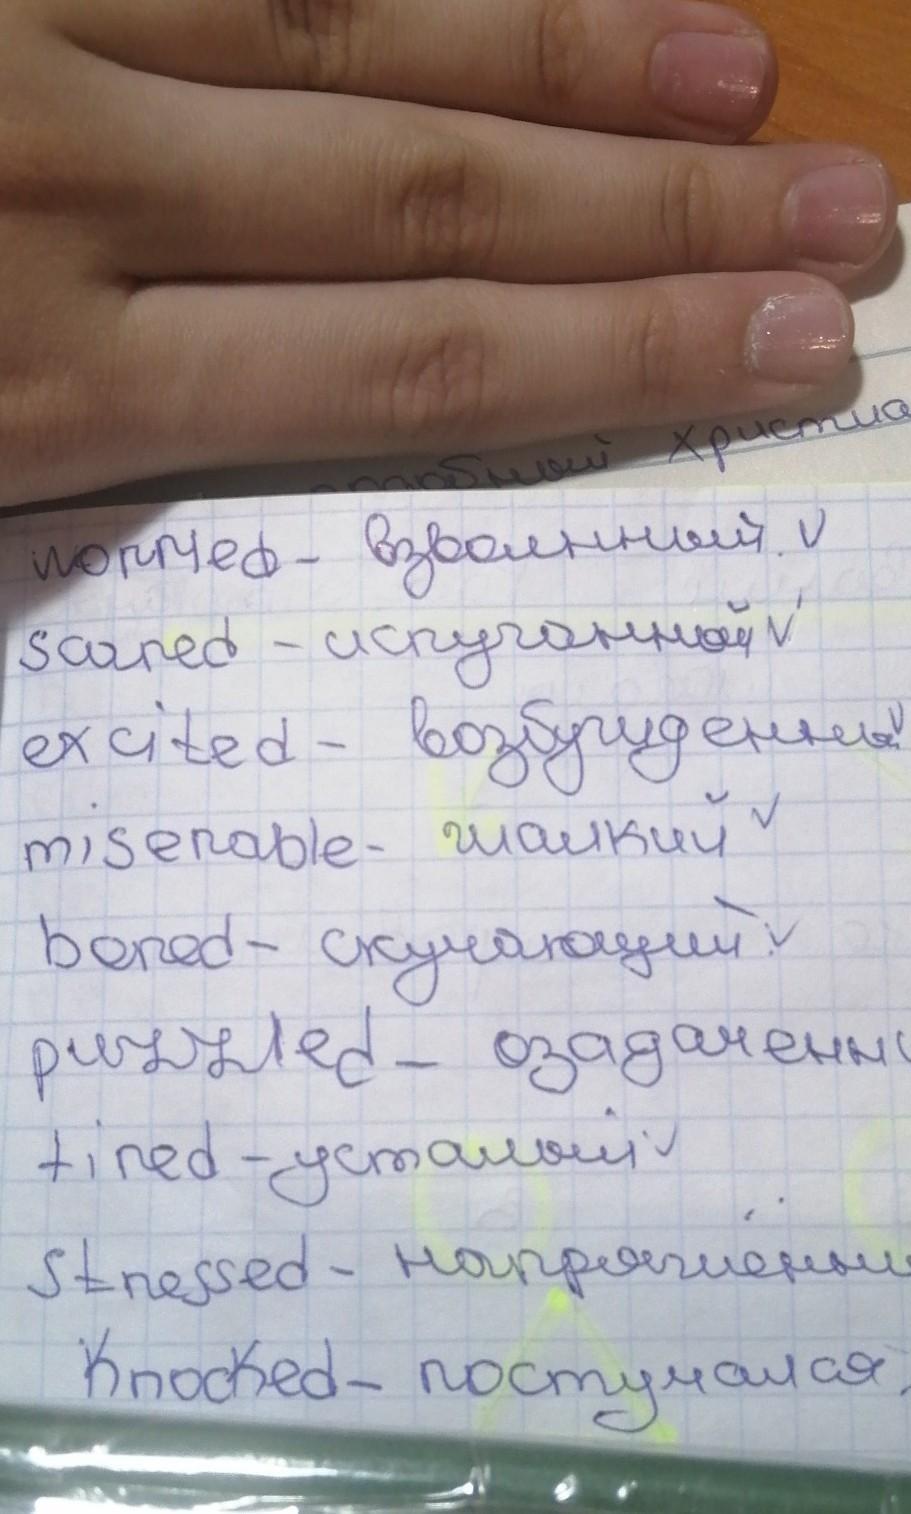 христиа
worried - взволнный. ✓
scared - испуганный ✓
excited - возбужденны ✓
miserable - жалкий ✓
bored - скучающий ✓
puzzled - озадаченн
tired - усталый ✓
stressed - напряжённы
Knocked - постучался